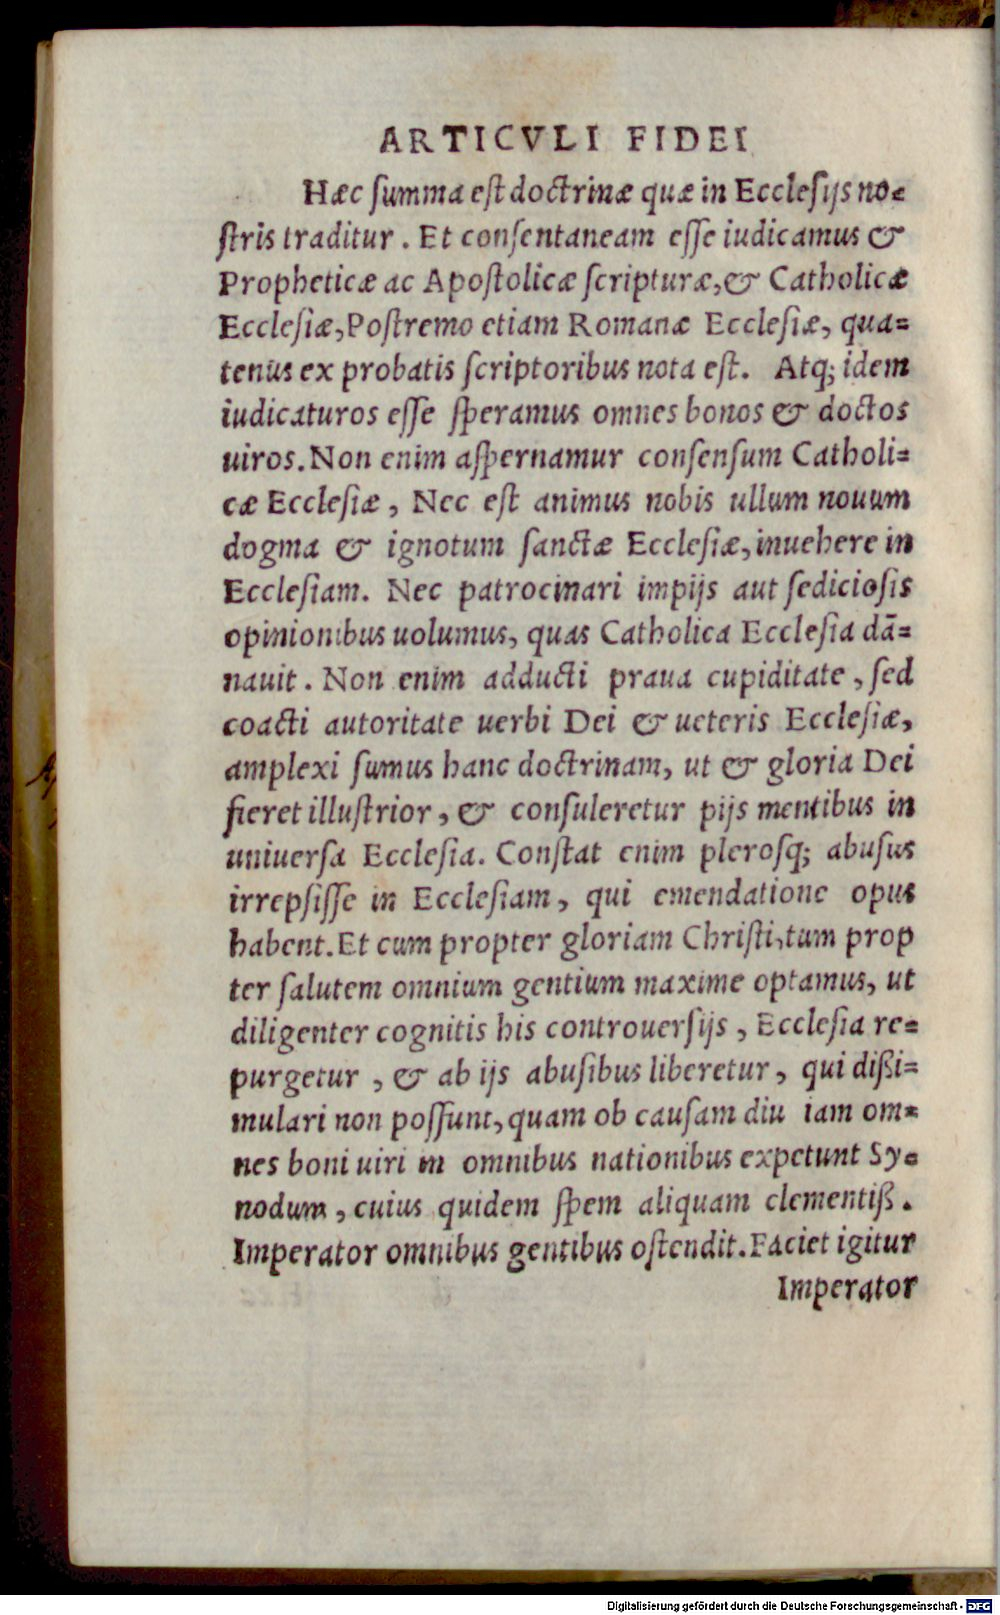 ARTICVLI FIDEI
Hæc summa est doctrinæ quæ in Ecclesijs no=
stris traditur. Et consentaneam esse iudicamus &
Propheticæ ac Apostolicæ scripturæ, & Catholicæ
Ecclesiæ, Postremo etiam Romanæ Ecclesiæ, qua=
tenus ex probatis scriptoribus nota est. Atq; idem
iudicaturos esse speramus omnes bonos & doctos
uiros. Non enim aspernamur consensum Catholi=
cæ Ecclesiæ, Nec est animus nobis ullum nouum
dogma & ignotum sanctæ Ecclesiæ, inuehere in
Ecclesiam. Nec patrocinari impijs aut sediciosis
opinionibus uolumus, quas Catholica Ecclesia dā=
nauit. Non enim adducti praua cupiditate, sed
coacti autoritate uerbi Dei & ueteris Ecclesiæ,
amplexi sumus hanc doctrinam, ut & gloria Dei
fieret illustrior, & consuleretur pijs mentibus in
uniuersa Ecclesia. Constat enim plerosq; abusus
irrepsisse in Ecclesiam, qui emendatione opus
habent. Et cum propter gloriam Christi, tum prop
ter salutem omnium gentium maxime optamus, ut
diligenter cognitis his controuersijs, Ecclesia re=
purgetur, & ab ijs abusibus liberetur, qui dißi=
mulari non possunt, quam ob causam diu iam om=
nes boni uiri in omnibus nationibus expetunt Sy=
nodum, cuius quidem spem aliquam clementiß.
Imperator omnibus gentibus ostendit. Faciet igitur
Imperator
Digitalisierung gefördert durch die Deutsche Forschungsgemeinschaft - DFG